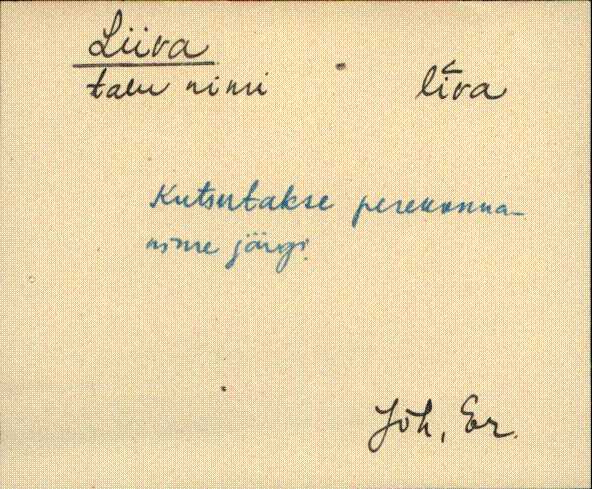 Liiva
talu nimi
lī́va
Kutsutakse perekonna-
nime järgi.
Jõh, Er.